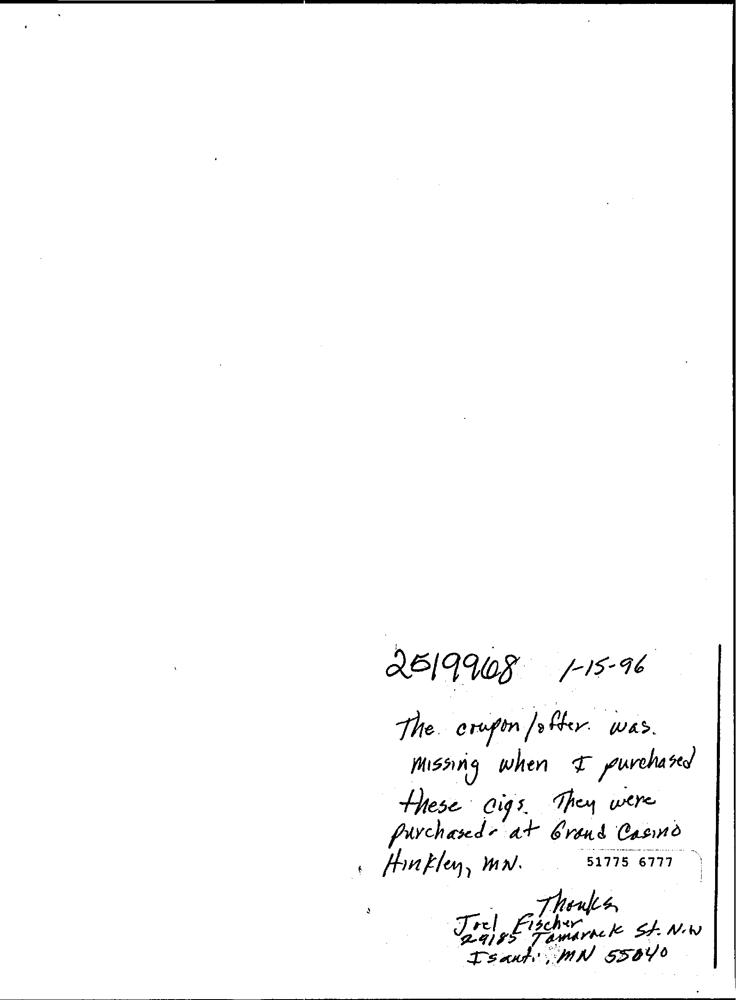 2519968 1-15-96
The coupon/offer was.
missing when I purchased
these cigs. They were
purchased at Grand Casino
Hinkley, MN.
51775 6777
Thanks
Joel Fischer
29185 Tamarack St. N.W
Isanti, MN 55040